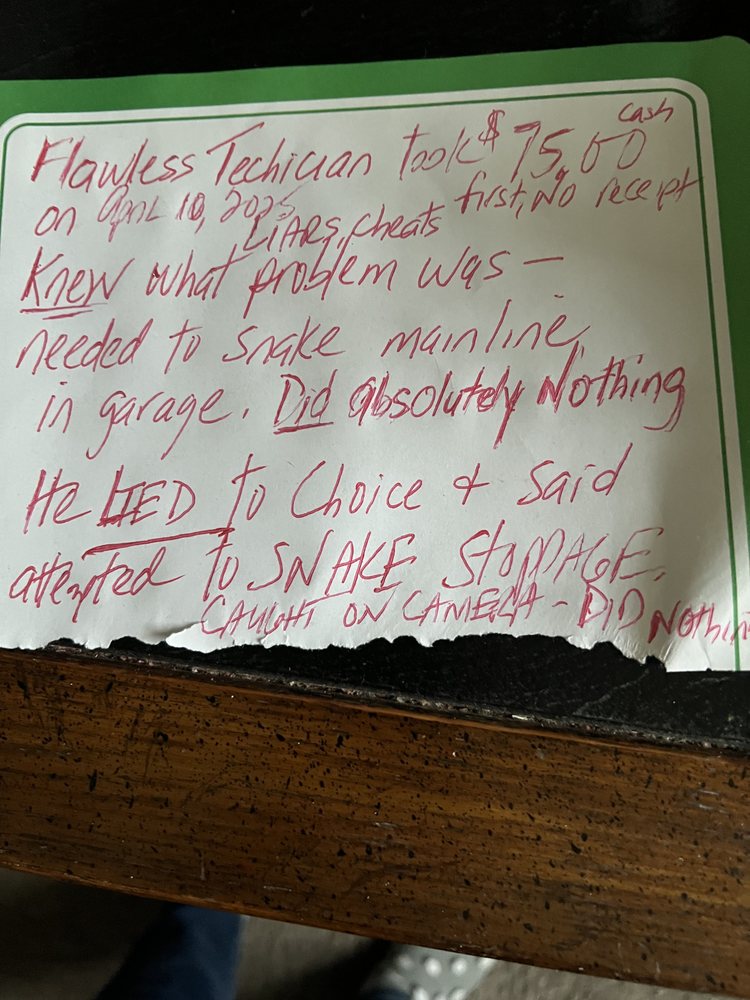 Flawless Techician took $75.00 cash
on April 10, 2025 first, No receipt
LIARS, cheats
Knew what problem was –
needed to snake mainline
in garage. Did absolutely Nothing
He LIED to Choice & said
attempted to SNAKE StoppAGE.
CAUGHT ON CAMERA - DID Nothing